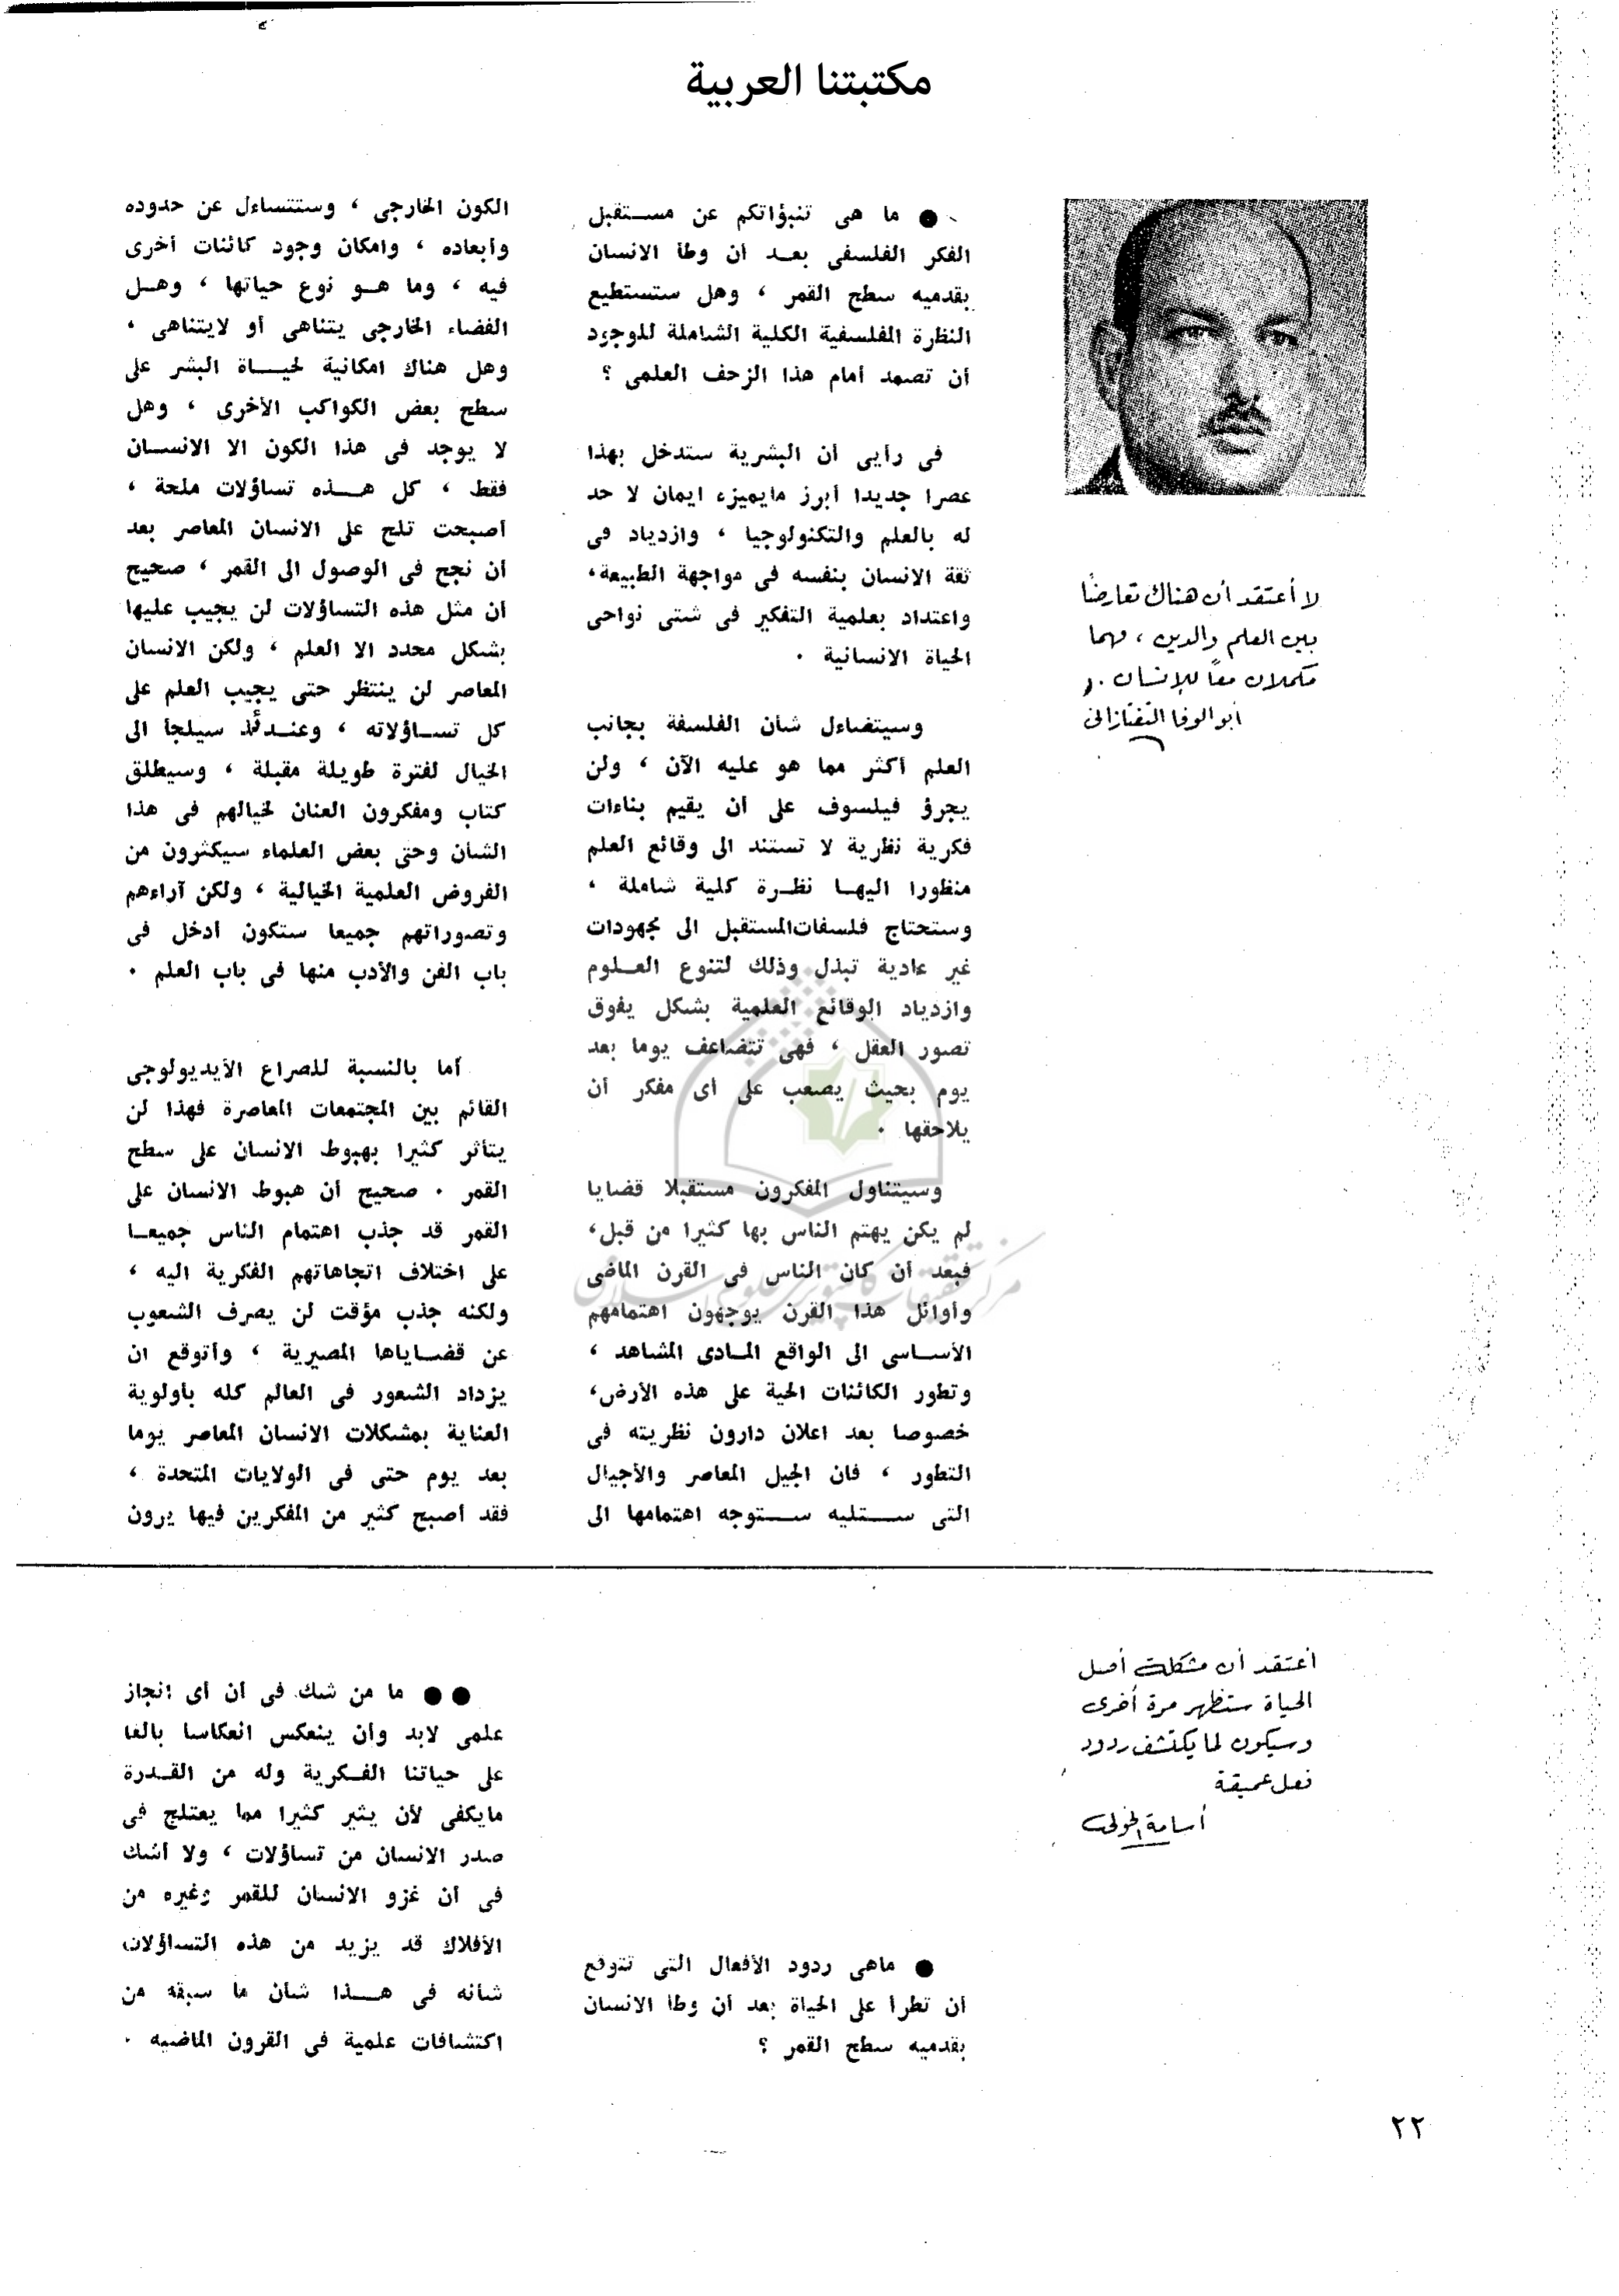 مكتبتنا العربية
لا أعتقد أن هناك تعارضاً
بين العلم والدين ، فهما
مكملان معاً للإنسان .
أبو الوفا التفتازانى
● ما هى تنبؤاتكم عن مستقبل
الفكر الفلسفى بعد أن وطأ الانسان
بقدميه سطح القمر ، وهل ستستطيع
النظرة الفلسفية الكلية الشاملة للوجود
أن تصمد أمام هذا الزحف العلمى ؟
فى رأيى أن البشرية ستدخل بهذا
عصرا جديدا أبرز مايميزه ايمان لا حد
له بالعلم والتكنولوجيا ، وازدياد فى
ثقة الانسان بنفسه فى مواجهة الطبيعة،
واعتداد بعلمية التفكير فى شتى نواحى
الحياة الانسانية .
وسيتضاءل شأن الفلسفة بجانب
العلم أكثر مما هو عليه الآن ، ولن
يجرؤ فيلسوف على أن يقيم بناءات
فكرية نظرية لا تستند الى وقائع العلم
منظورا اليها نظرة كلية شاملة ،
وستحتاج فلسفات المستقبل الى مجهودات
غير عادية تبذل وذلك لتنوع العلوم
وازدياد الوقائع العلمية بشكل يفوق
تصور العقل ، فهى تتضاعف يوما بعد
يوم بحيث يصعب على أى مفكر أن
يلاحقها .
وسيتناول المفكرون مستقبلا قضايا
لم يكن يهتم الناس بها كثيرا من قبل،
فبعد أن كان الناس فى القرن الماضى
وأوائل هذا القرن يوجهون اهتمامهم
الأساسى الى الواقع المادى المشاهد ،
وتطور الكائنات الحية على هذه الأرض،
خصوصا بعد اعلان دارون نظريته فى
التطور ، فان الجيل المعاصر والأجيال
التى ستليه ستوجه اهتمامها الى
الكون الخارجى ، وستتساءل عن حدوده
وأبعاده ، وامكان وجود كائنات أخرى
فيه ، وما هو نوع حياتها ، وهل
الفضاء الخارجى يتناهى أو لايتناهى ،
وهل هناك امكانية لحياة البشر على
سطح بعض الكواكب الأخرى ، وهل
لا يوجد فى هذا الكون الا الانسان
فقط ، كل هذه تساؤلات ملحة ،
أصبحت تلح على الانسان المعاصر بعد
أن نجح فى الوصول الى القمر ، صحيح
أن مثل هذه التساؤلات لن يجيب عليها
بشكل محدد الا العلم ، ولكن الانسان
المعاصر لن ينتظر حتى يجيب العلم على
كل تساؤلاته ، وعندئذ سيلجأ الى
الخيال لفترة طويلة مقبلة ، وسيطلق
كتاب ومفكرون العنان لخيالهم فى هذا
الشأن وحتى بعض العلماء سيكثرون من
الفروض العلمية الخيالية ، ولكن آراءهم
وتصوراتهم جميعا ستكون أدخل فى
باب الفن والأدب منها فى باب العلم .
أما بالنسبة للصراع الأيديولوجى
القائم بين المجتمعات المعاصرة فهذا لن
يتأثر كثيرا بهبوط الانسان على سطح
القمر . صحيح أن هبوط الانسان على
القمر قد جذب اهتمام الناس جميعا
على اختلاف اتجاهاتهم الفكرية اليه ،
ولكنه جذب مؤقت لن يصرف الشعوب
عن قضاياها المصيرية ، وأتوقع أن
يزداد الشعور فى العالم كله بأولوية
العناية بمشكلات الانسان المعاصر يوما
بعد يوم حتى فى الولايات المتحدة ،
فقد أصبح كثير من المفكرين فيها يرون
أعتقد أن مشكلة أصل
الحياة ستظهر مرة أخرى
وسيكون لما يكتشف ردود
فعل عميقة
أسامة الخولى
● ماهى ردود الأفعال التى تتوقع
أن تطرأ على الحياة بعد أن وطأ الانسان
بقدميه سطح القمر ؟
●● ما من شك فى أن أى انجاز
علمى لابد وأن ينعكس انعكاسا بالغا
على حياتنا الفكرية وله من القدرة
مايكفى لأن يثير كثيرا مما يعتلج فى
صدر الانسان من تساؤلات ، ولا أشك
فى أن غزو الانسان للقمر وغيره من
الأفلاك قد يزيد من هذه التساؤلات
شأنه فى هذا شأن ما سبقه من
اكتشافات علمية فى القرون الماضيه .
٢٢